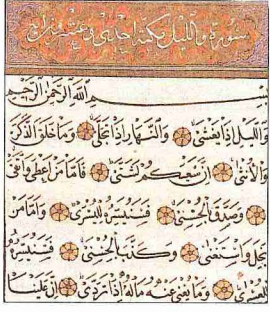 سورة والليل مكية احدى وعشرون اية
بِسْمِ اللَّهِ الرَّحْمَٰنِ الرَّحِيمِ
وَاللَّيْلِ إِذَا يَغْشَىٰ وَالنَّهَارِ إِذَا تَجَلَّىٰ وَمَا خَلَقَ الذَّكَرَ
وَالْأُنْثَىٰ إِنَّ سَعْيَكُمْ لَشَتَّىٰ فَأَمَّا مَنْ أَعْطَىٰ وَاتَّقَىٰ
وَصَدَّقَ بِالْحُسْنَىٰ فَسَنُيَسِّرُهُ لِلْيُسْرَىٰ وَأَمَّا مَنْ
بَخِلَ وَاسْتَغْنَىٰ وَكَذَّبَ بِالْحُسْنَىٰ فَسَنُيَسِّرُهُ
لِلْعُسْرَىٰ وَمَا يُغْنِي عَنْهُ مَالُهُ إِذَا تَرَدَّىٰ إِنَّ عَلَيْنَا